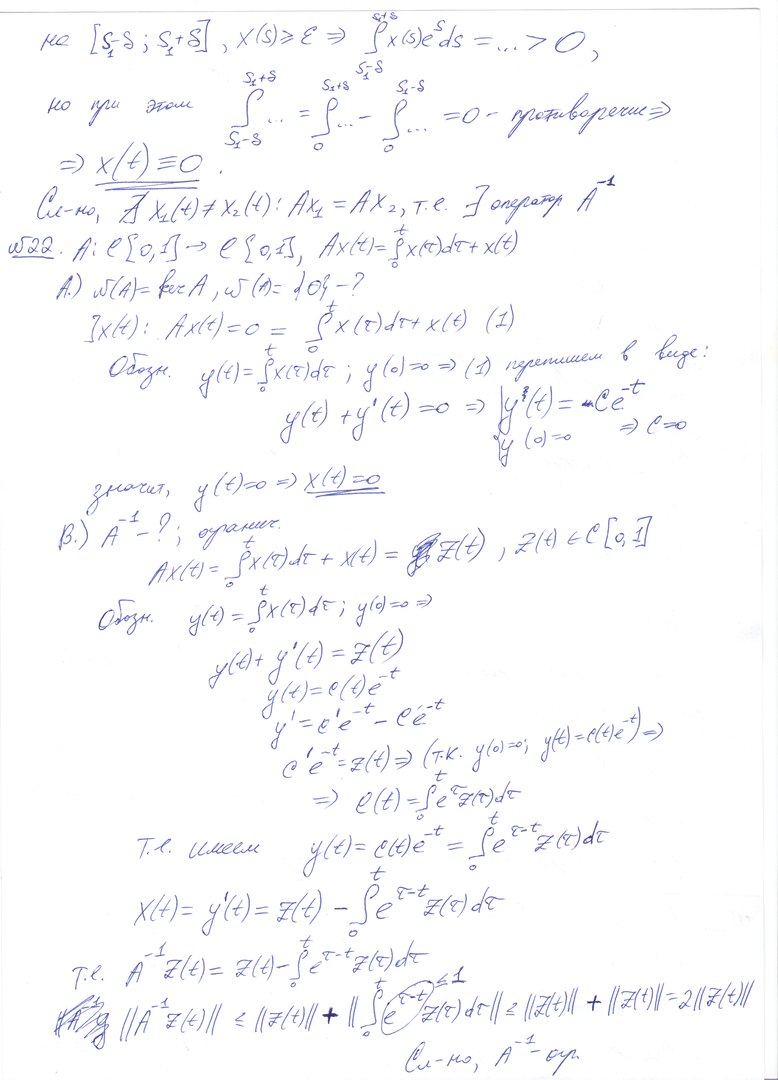 на [S₁-δ ; S₁+δ], x(s) ≥ ε ⇒ ∫_{S₁-δ}^{S₁+δ} x(s)e^s ds = ... > 0,
но при этом ∫_{S₁-δ}^{S₁+δ} ... = ∫_0^{S₁+δ} ... - ∫_0^{S₁-δ} ... = 0 - противоречие ⇒
⇒ x(t) ≡ 0.
Сл-но, ∄ x₁(t) ≠ x₂(t): Ax₁ = Ax₂, т.е. ∃ оператор A⁻¹
№22. A: C[0,1] → C[0,1], Ax(t) = ∫_0^t x(τ)dτ + x(t)
A.) N(A) = ker A, N(A) = {0} - ?
∃x(t): Ax(t) = 0 = ∫_0^t x(τ)dτ + x(t) (1)
Обозн. y(t) = ∫_0^t x(τ)dτ ; y(0) = 0 ⇒ (1) перепишем в виде:
y(t) + y'(t) = 0 ⇒ { y(t) = Ce^{-t}
y(0) = 0 ⇒ C = 0
значит, y(t) = 0 ⇒ x(t) = 0
B.) A⁻¹ - ? ; огранич.
Ax(t) = ∫_0^t x(τ)dτ + x(t) = z(t), z(t) ∈ C[0,1]
Обозн. y(t) = ∫_0^t x(τ)dτ ; y(0) = 0 ⇒
y(t) + y'(t) = z(t)
y(t) = C(t)e^{-t}
y' = C'e^{-t} - Ce^{-t}
C'e^{-t} = z(t) ⇒ (т.к. y(0) = 0; y(t) = C(t)e^{-t}) ⇒
⇒ C(t) = ∫_0^t e^τ z(τ)dτ
Т.е. имеем y(t) = C(t)e^{-t} = ∫_0^t e^{τ-t} z(τ)dτ
x(t) = y'(t) = z(t) - ∫_0^t e^{τ-t} z(τ)dτ
Т.е. A⁻¹z(t) = z(t) - ∫_0^t e^{τ-t} z(τ)dτ
||A⁻¹z(t)|| ≤ ||z(t)|| + ||∫_0^t e^{τ-t} z(τ)dτ|| ≤ ||z(t)|| + ||z(t)|| = 2||z(t)|| ≤ 1
Сл-но, A⁻¹ - огр.